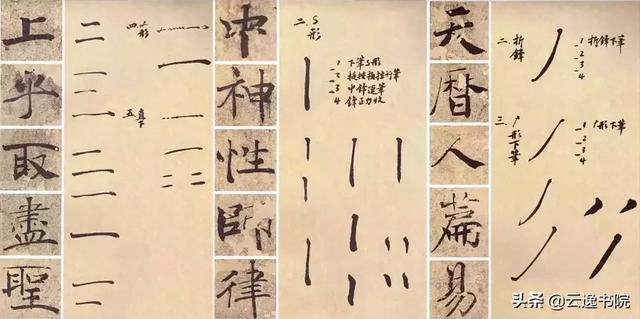 上
乎
取
盡
聖
四、形
五、直下
中
神
性
師
律
二、S形
1 下筆S形
2 行筆
3 中鋒運筆
4 鋒正力收
天
曆
人
篇
易
二、折鋒
1 折鋒下筆
2
3
4
三、形下筆
1 形下筆
2
3
4
头条 @云逸书院